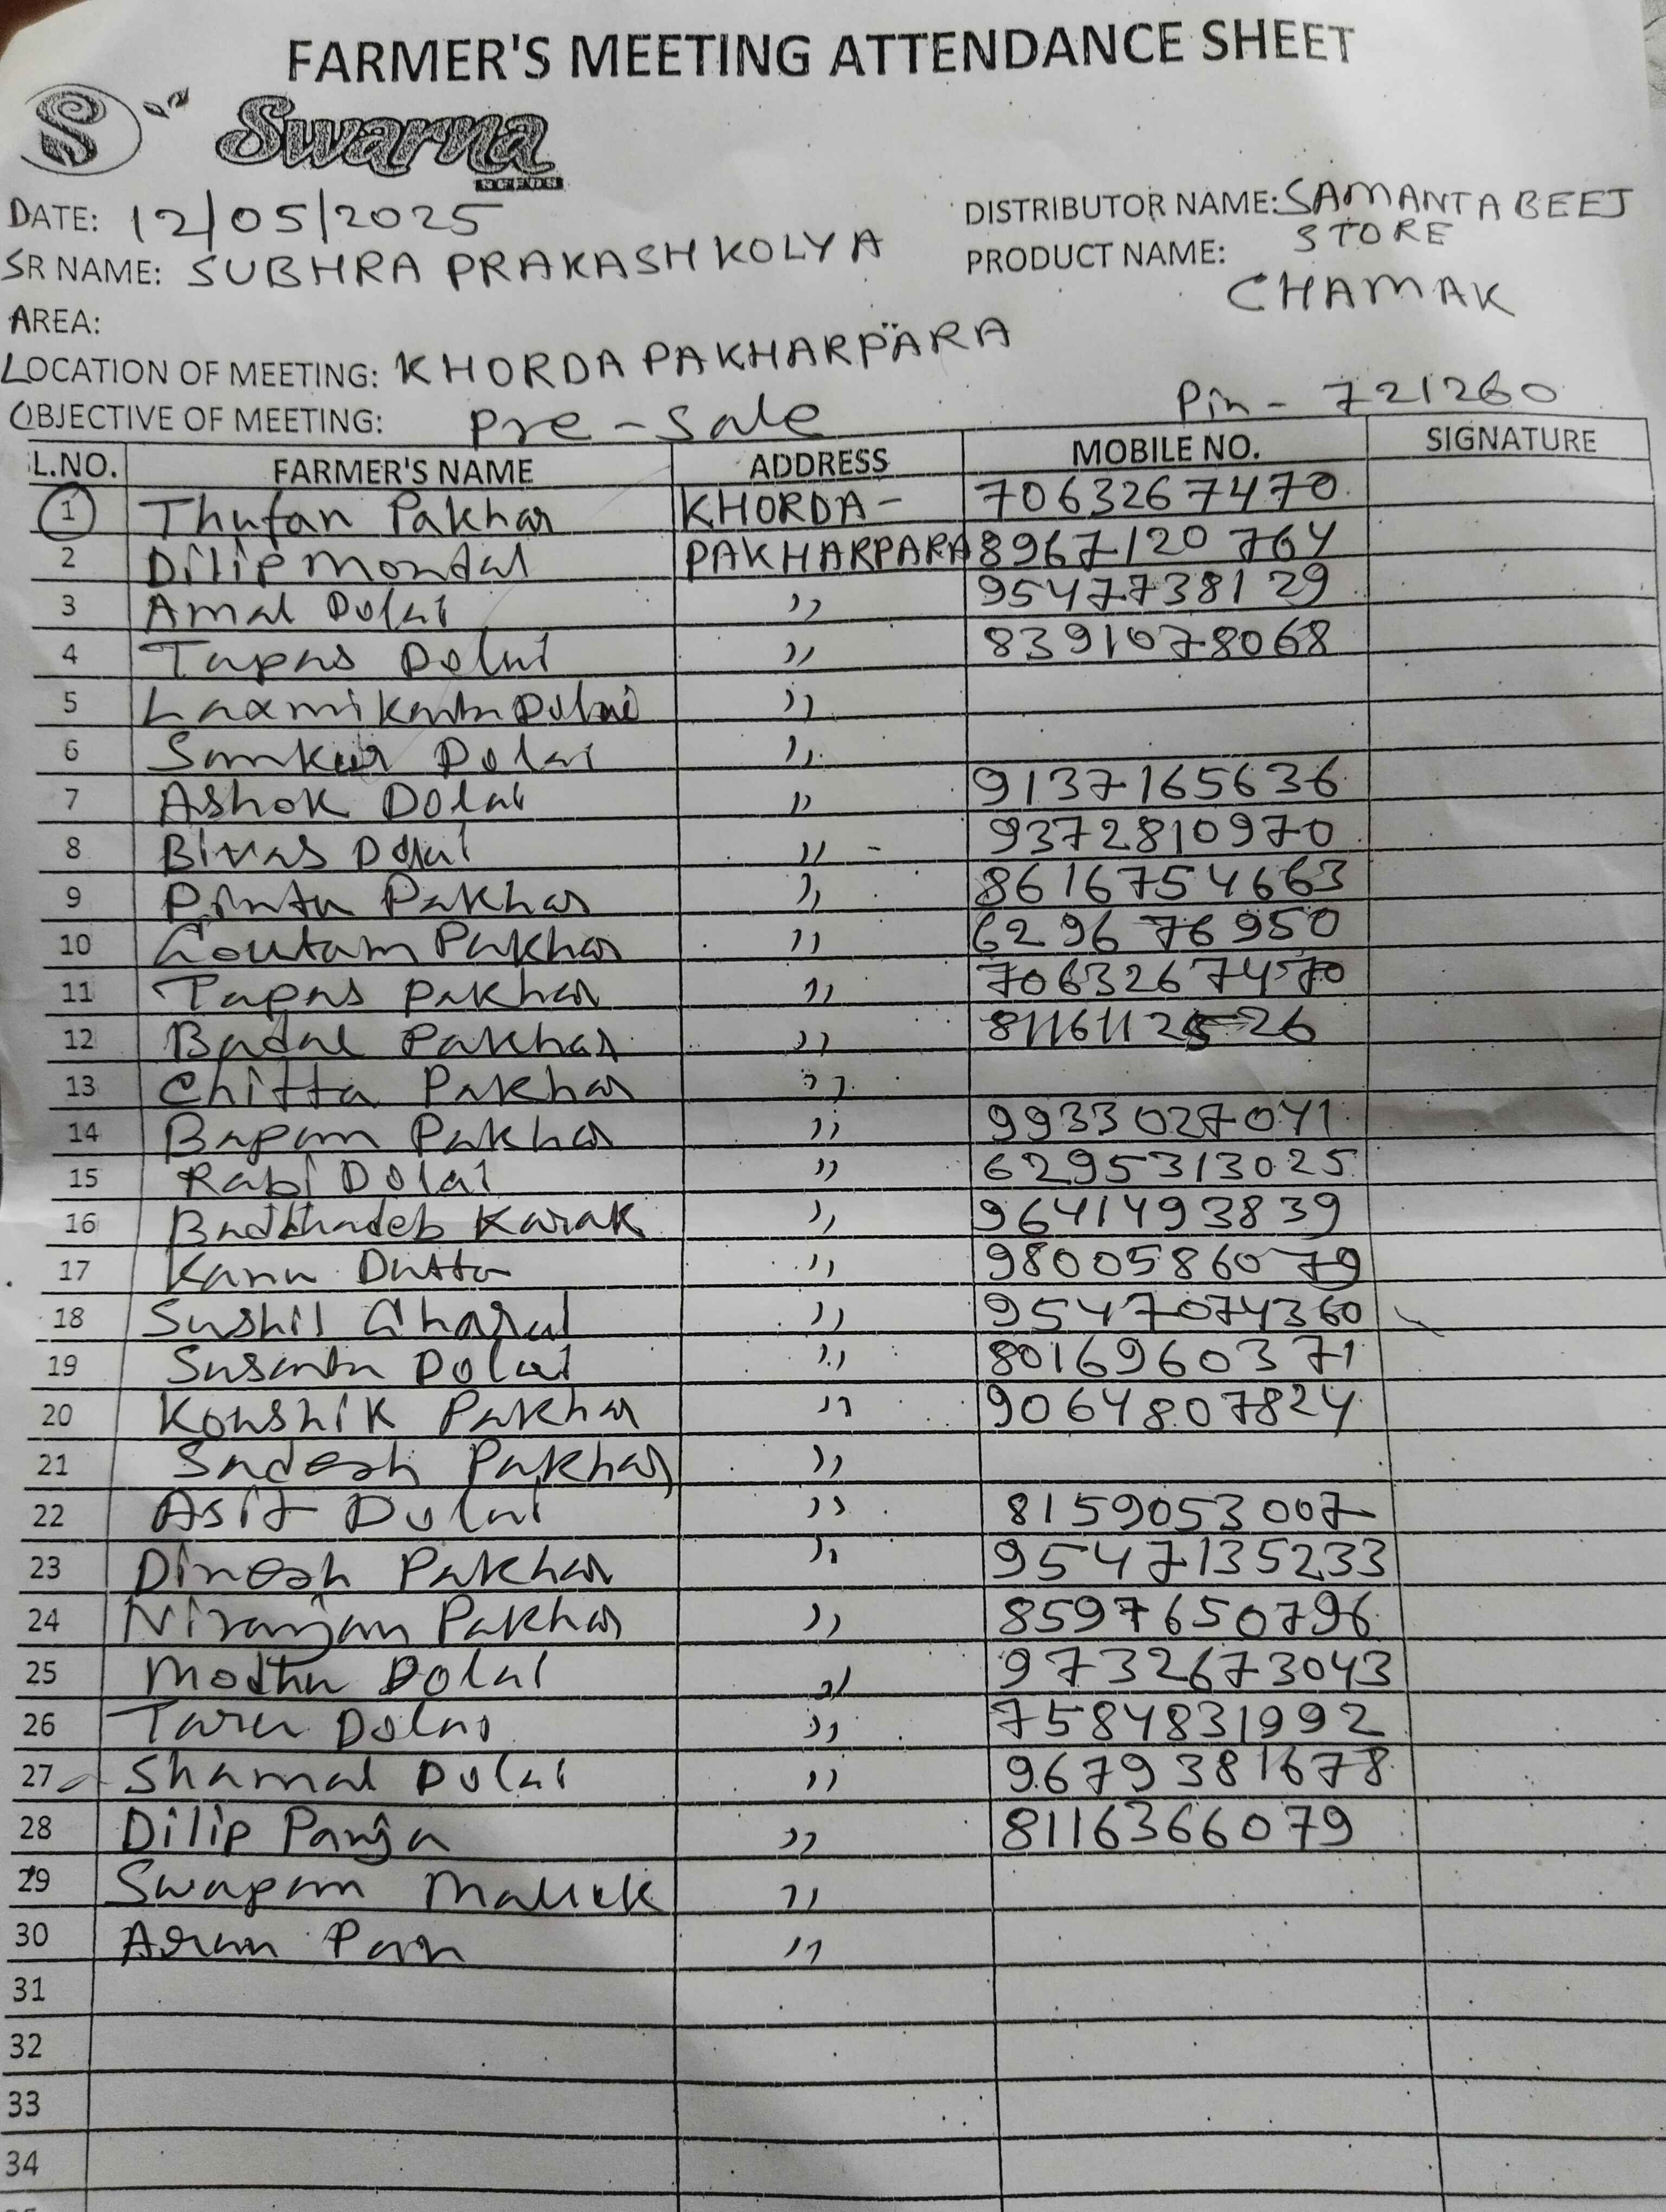 FARMER'S MEETING ATTENDANCE SHEET
S Swarna
SEEDS
DATE: 12/05/2025
DISTRIBUTOR NAME: SAMANTA BEEJ STORE
SR NAME: SUBHRA PRAKASH KOLYA
PRODUCT NAME: CHAMAK
AREA:
LOCATION OF MEETING: KHORDA PAKHARPARA
OBJECTIVE OF MEETING: Pre-Sale
Pin - 721260
L.NO. FARMER'S NAME ADDRESS MOBILE NO. SIGNATURE
1 Thufan Pakhar KHORDA- 7063267470
2 Dilip Mondal PAKHARPARA 8967120764
3 Amal Dolai ,, 9547738129
4 Tapas Dolai ,, 8391078068
5 Laxmikanta Dolai ,,
6 Sankar Dolai ,,
7 Ashok Dolai ,, 9137165636
8 Bivas Dolai ,, 9372810970
9 Pintu Pakhar ,, 8616754663
10 Goutam Pakhar ,, 629676950
11 Tapas Pakhar ,,
12 Badal Pakhar ,,
13 Chitta Pakhar ,,
14 Bapan Pakhar ,, 9933027041
15 Rabi Dolai ,, 6295313025
16 Karak ,, 9641493839
17 Kanu Dutta ,, 9800586079
18 Sushil Ghorai ,, 9547074360
19 Susanta Dolai ,, 8016960371
20 Koushik Pakhar ,, 9064807824
21 Sudesh Pakhar ,,
22 Asit Dolai ,, 8159053007
23 Dinesh Pakhar ,, 9547135233
24 Niranjan Pakhar ,, 8597650796
25 Modhu Dolai ,, 9732673043
26 Taru Dolai ,, 7584831992
27 Shamal Dolai ,, 9679381678
28 Dilip Panja ,, 8116366079
29 Swapan Mallick ,,
30 Arun Parn ,,
31
32
33
34